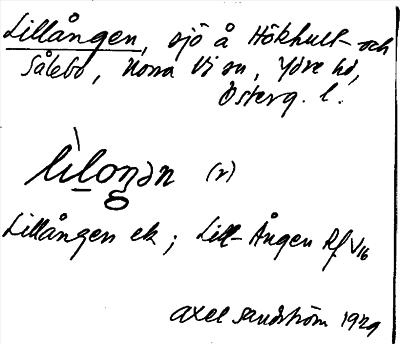 Lillången, sjö å Hökhult- och
Sålebo, Norra Vi sn, Ydre hd,
Österg. l.
lìloŋən (r)
Lillången ek; Lill-Ången Rf V16
Axel Sandström 1929